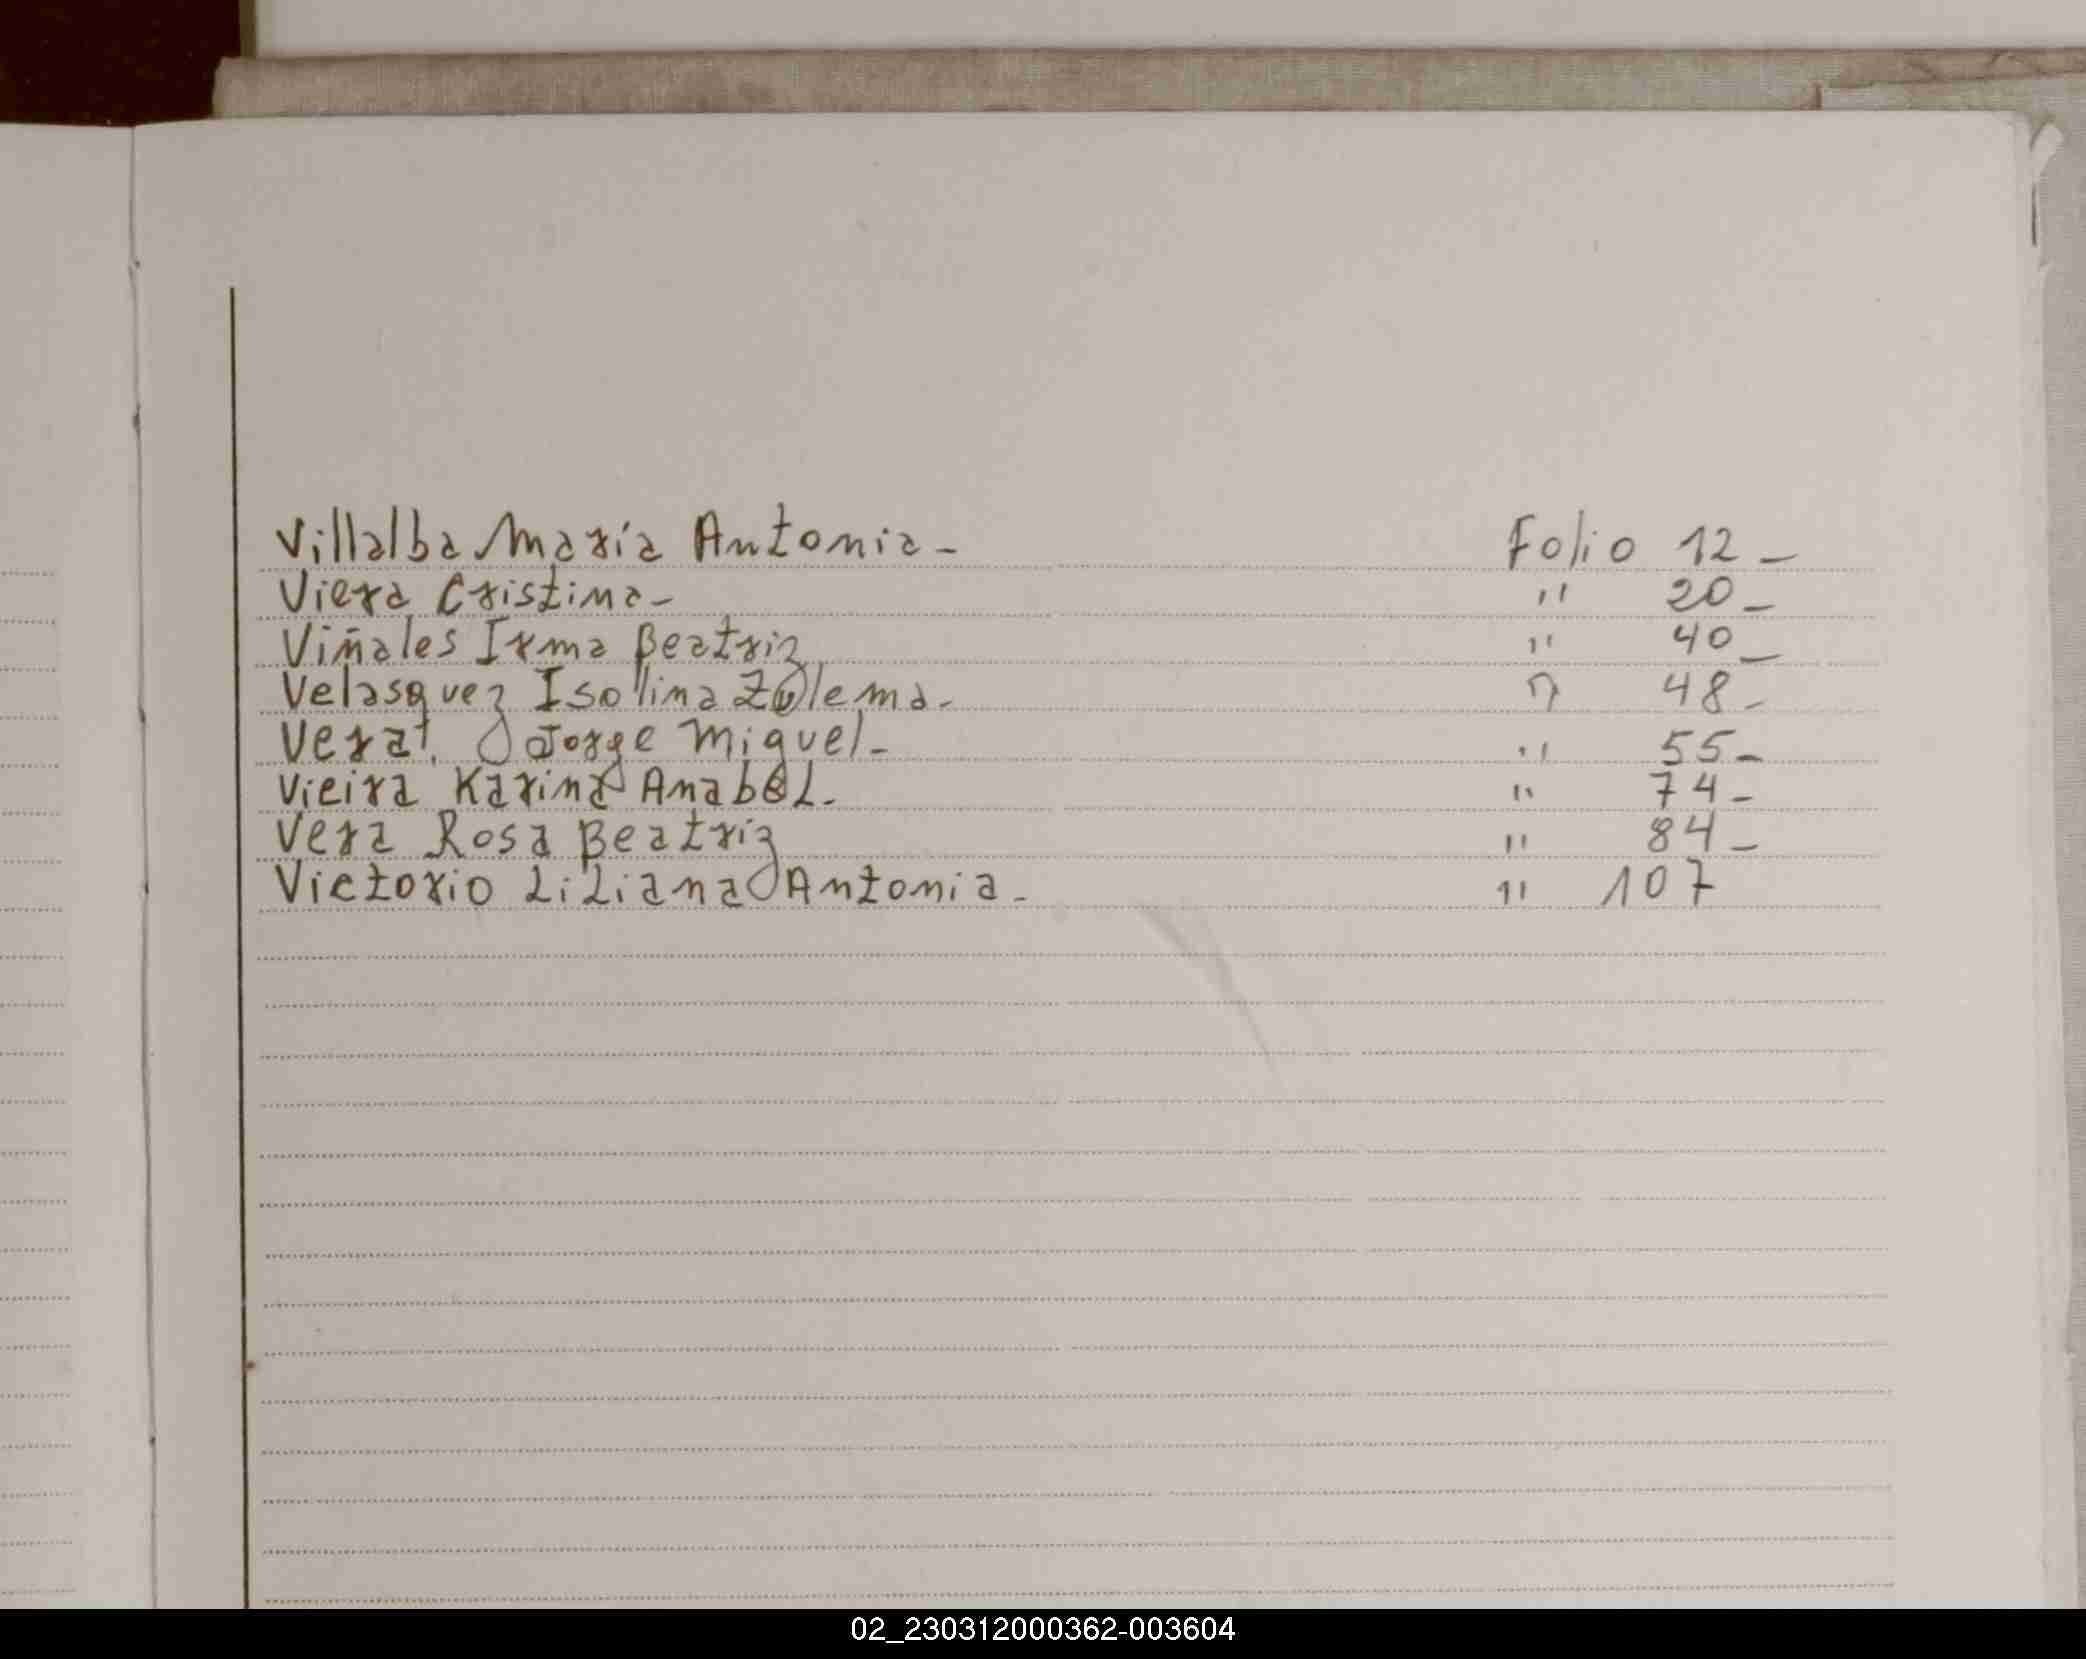 Villalba María Antonia - Folio 12 -
Viera Cristina - " 20 -
Viñales Irma Beatriz " 40 -
Velasquez Isolina Zulema - " 48 -
Vera, Jorge Miguel - " 55 -
Vieira Karina Anabel - " 74 -
Vera Rosa Beatriz " 84 -
Victorio Liliana Antonia - " 107
02_230312000362-003604